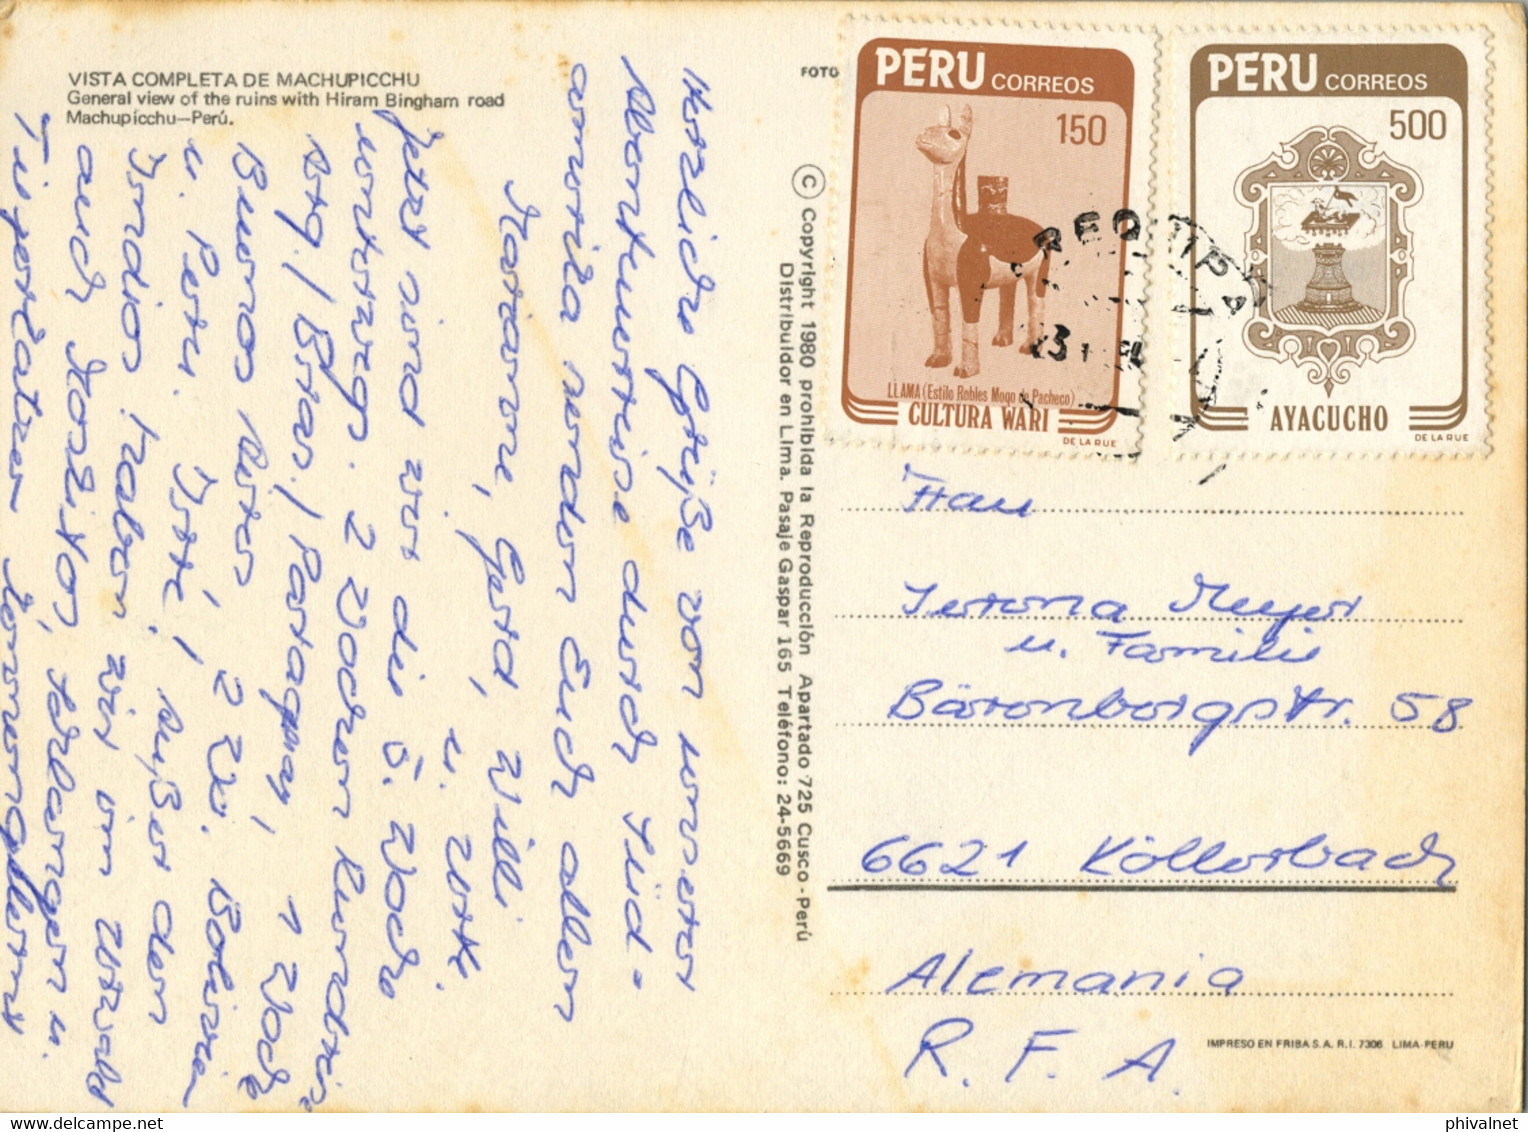 VISTA COMPLETA DE MACHUPICCHU
General view of the ruins with Hiram Bingham road
Machupicchu—Perú.
FOTO
Herzliche Grüße von unserer
Abenteuerreise durch Süd-
amerika senden Euch allen
Marianne, Gerd, Willi
u.
Jetzt sind wir die 5. Woche
unterwegs. 2 Wochen Rundreise
Arg. / Bras. / Paraguay, 1 Woche
Buenos Aires, 2 Wo. Bolivien
u. Peru. Außer den
Indios haben wir im Urwald
auch Moskitos, Schlangen u.
© Copyright 1980 prohibida la Reproducción Apartado 725 Cusco - Perú
Distribuidor en Lima. Pasaje Gaspar 165 Teléfono: 24-5669
PERU CORREOS
150
LLAMA (Estilo Robles Moqo de Pacheco)
CULTURA WARI
DE LA RUE
PERU CORREOS
500
AYACUCHO
DE LA RUE
AREQUIPA
Frau
Meyer
u. Familie
58
6621 Köllerbach
Alemania
R. F. A.
IMPRESO EN FRIBA S.A. R.I. 7306 LIMA-PERU
phivalnet